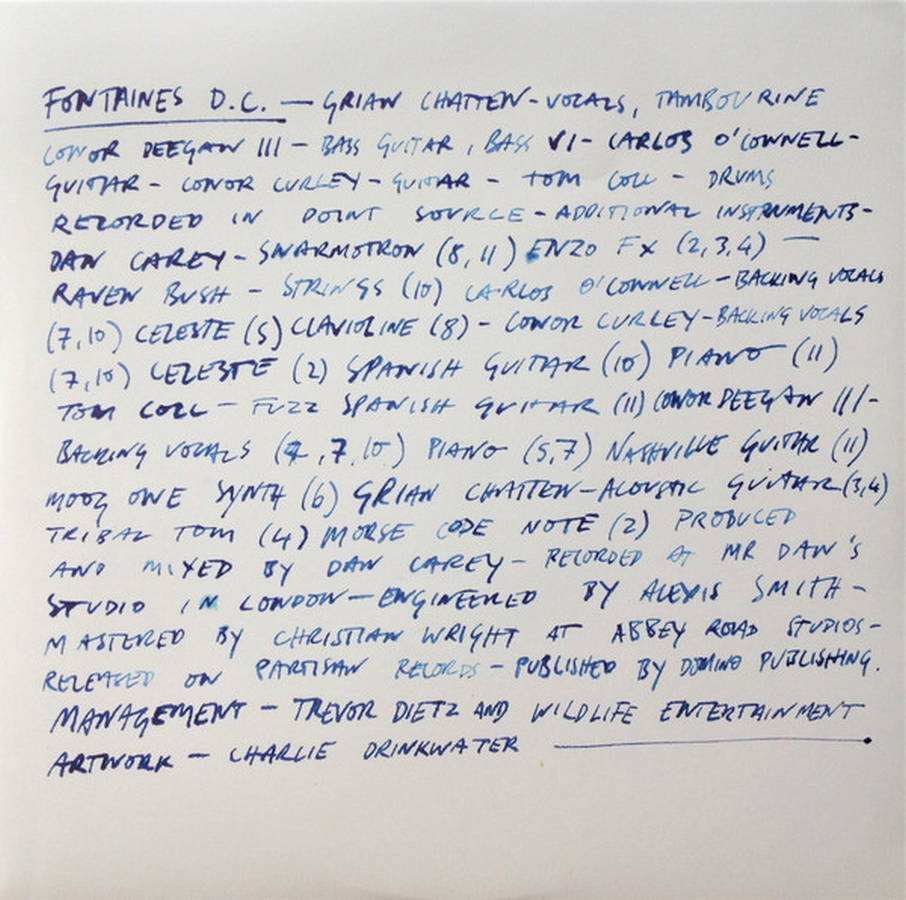 FONTAINES D.C. — GRIAN CHATTEN - VOCALS, TAMBOURINE
CONOR DEEGAN III - BASS GUITAR, BASS VI - CARLOS O'CONNELL -
GUITAR - CONOR CURLEY - GUITAR - TOM COLL - DRUMS
RECORDED IN POINT SOURCE - ADDITIONAL INSTRUMENTS -
DAN CAREY - SWARMOTRON (8, 11) ENZO FX (2,3,4) —
RAVEN BUSH - STRINGS (10) CARLOS O'CONNELL - BACKING VOCALS
(7,10) CELESTE (5) CLAVIOLINE (8) - CONOR CURLEY - BACKING VOCALS
(7,10) CELESTE (2) SPANISH GUITAR (10) PIANO (11)
TOM COLL - FUZZ SPANISH GUITAR (11) CONOR DEEGAN III -
BACKING VOCALS (4,7,10) PIANO (5,7) NASHVILLE GUITAR (11)
MOOG ONE SYNTH (6) GRIAN CHATTEN - ACOUSTIC GUITAR (3,4)
TRIBAL TOM (4) MORSE CODE NOTE (2) PRODUCED
AND MIXED BY DAN CAREY - RECORDED AT MR DAN'S
STUDIO IN LONDON - ENGINEERED BY ALEXIS SMITH -
MASTERED BY CHRISTIAN WRIGHT AT ABBEY ROAD STUDIOS -
RELEASED ON PARTISAN RECORDS - PUBLISHED BY DOMINO PUBLISHING.
MANAGEMENT - TREVOR DIETZ AND WILDLIFE ENTERTAINMENT
ARTWORK - CHARLIE DRINKWATER